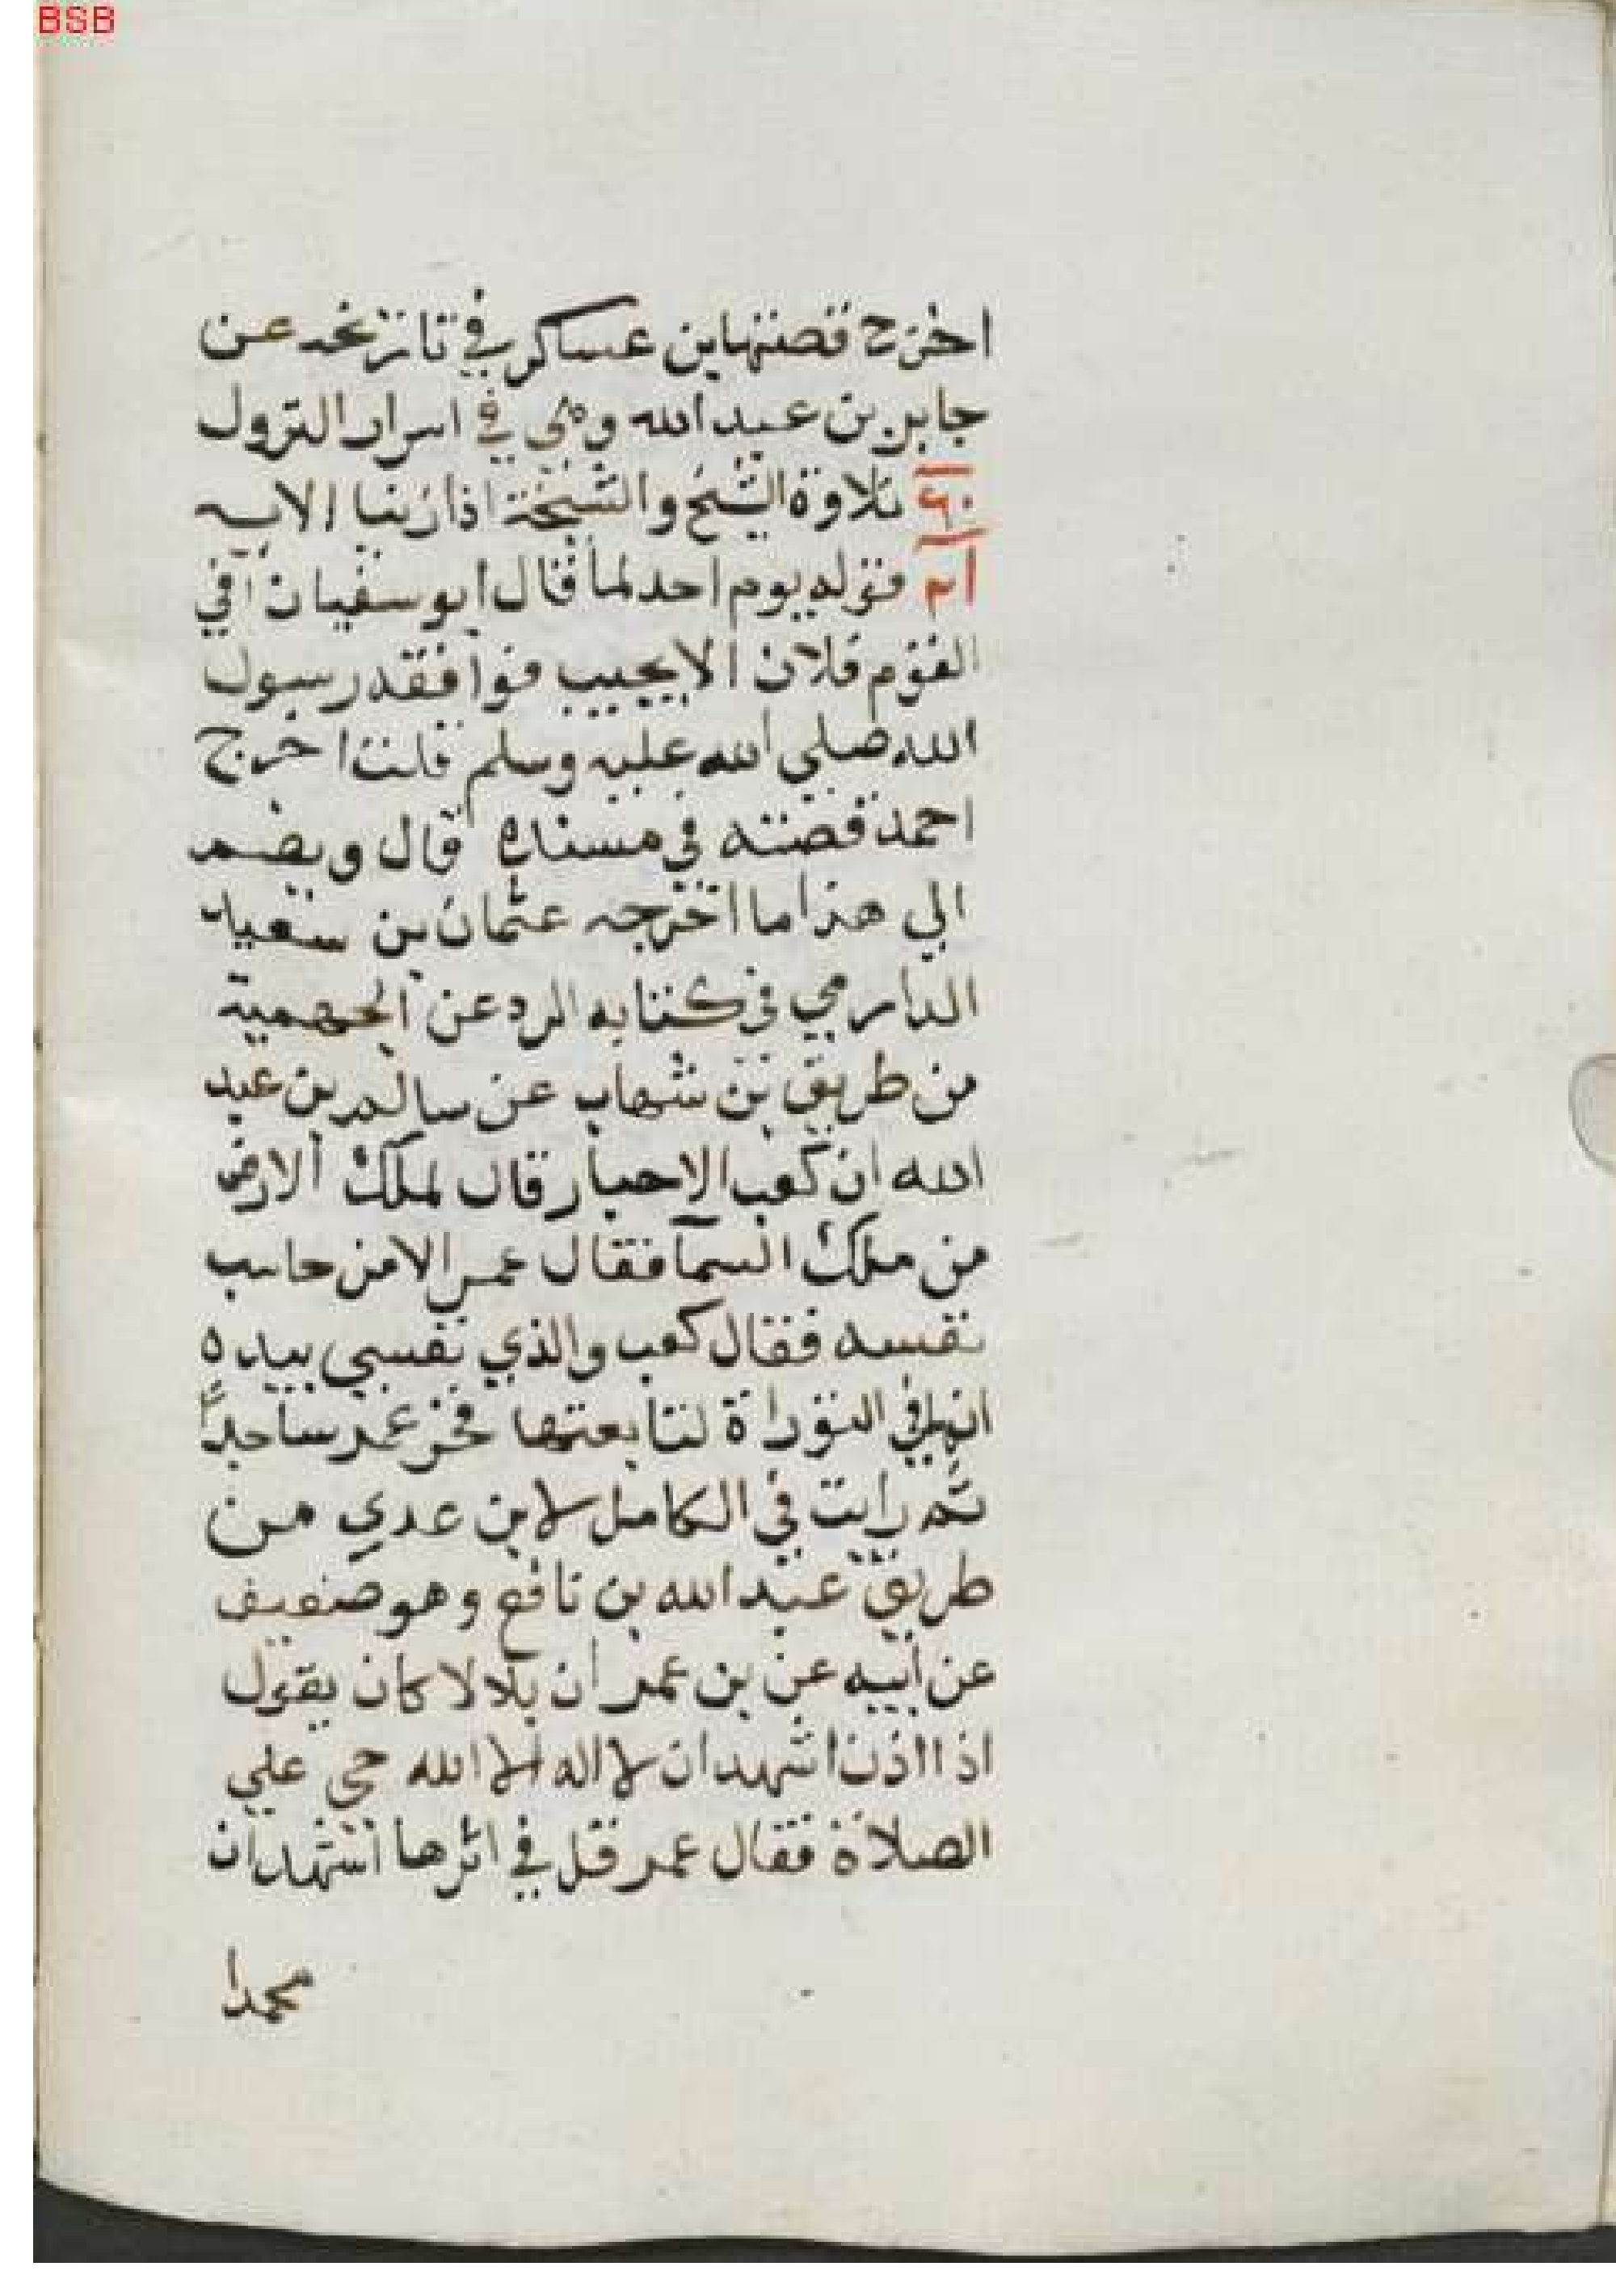 BSB
اخرج قصتها بن عساكر في تاريخه عن
جابر بن عبد الله وهي في اسرار التزول
تلاوة الشيخ والشيخة اذا زنيا الايه
قوله يوم احد لما قال ابو سفيان افي
القوم فلان الا يجيب فوافقه رسول
الله صلي الله عليه وسلم قلت اخرج
احمد قصته في مسنده قال ويضم
الي هذا ما اخرجه عثمان بن سعيد
الدارمي في كتابه الرد عن الجهمية
من طريق بن شهاب عن سالم بن عبد
الله ان كعب الاحبار قال لملك الارض
من ملك السما فقال عمر الا من حاسب
نفسه فقال كعب والذي نفسي بيده
انها في التوراة لتابعتها فخر عمر ساجدا
ثم رايت في الكامل لابن عدي من
طريق عبد الله بن نافع وهو ضعيف
عن ابيه عن بن عمر ان بلالا كان يقول
اذا اذن اشهد ان لا اله الا الله حي علي
الصلاة فقال عمر قل في اثرها اشهد ان
محمدا